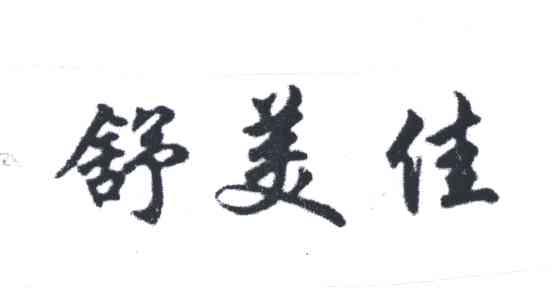 舒美佳